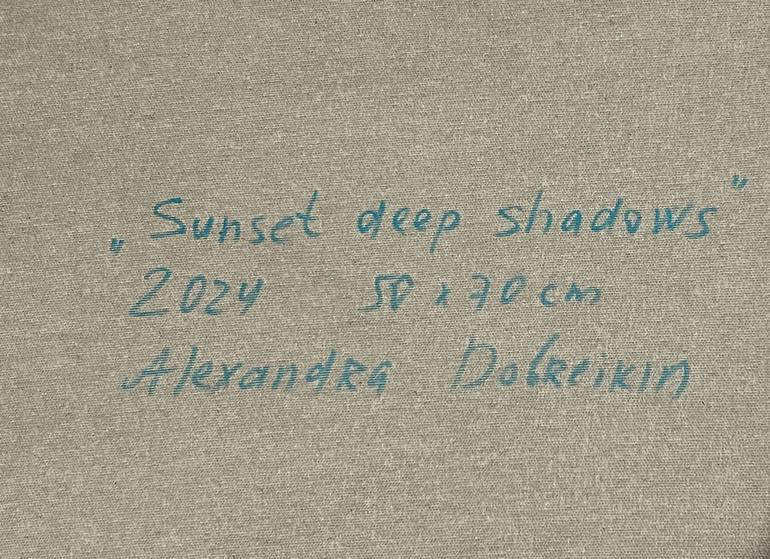 „Sunset deep shadows"
2024 50 x 70 cm
Alexandra Dobreikin